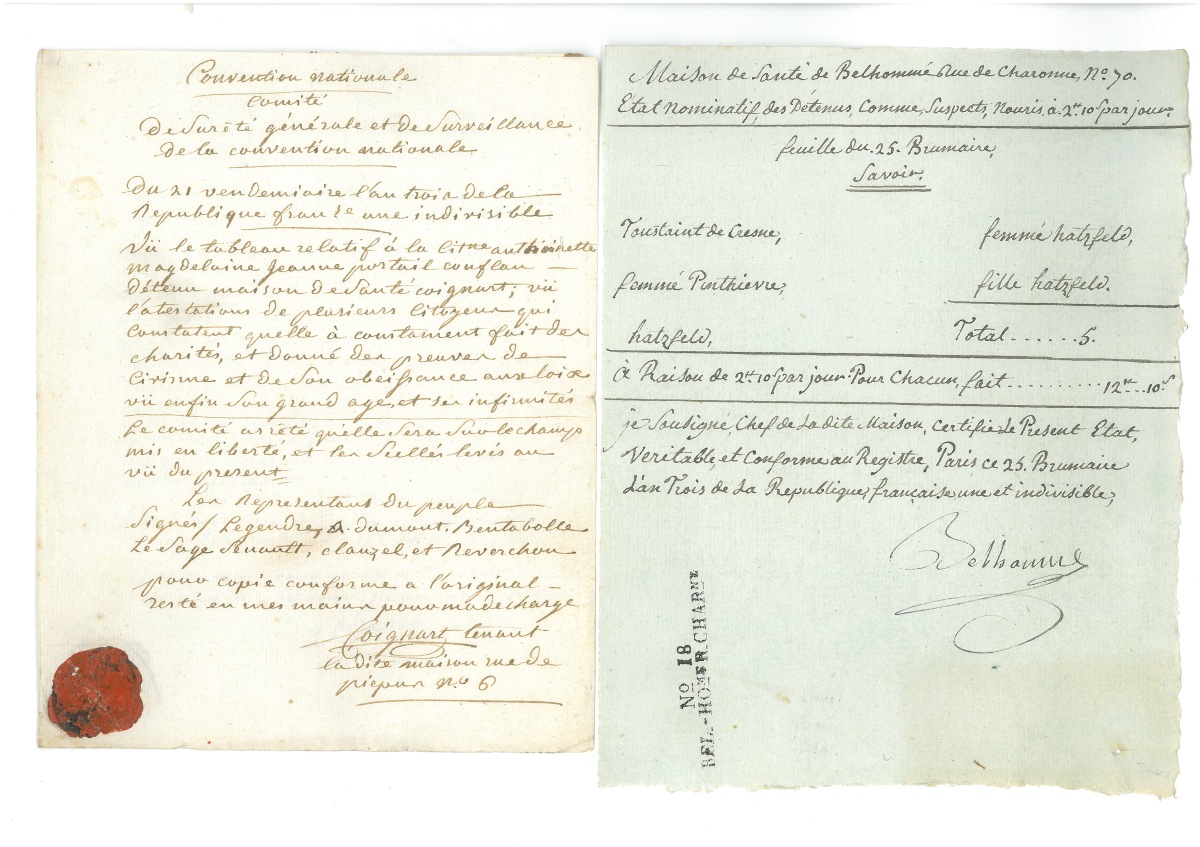 Convention nationale
Comité
de Sureté générale et de Surveillance
de la convention nationale
Du 21 vendemiaire l'an trois de la
Republique fran se une indivisible
Vû le tableau relatif à la Citne anthoinette
magdelaine Jeanne portail conflan
détenu maison de Santé Coignart; vû
l'atestations de plusieurs Citoyens qui
Constatent quelle à constament fait des
charités, et donné des preuves de
Civisme et de Son obeissance aux loix
vû enfin Son grand age, et ses infirmités
Le comité arrêté qu'elle Sera Sur le champs
mis en liberté, et les Scellés levés au
vû du present
Les Representans du peuple
Signés/ Legendre, A. dumont, Bentabolle
Le Sage Senault, clauzel, et Reverchon
pour copie conforme a l'original
resté en mes mains pour ma decharge
Coignart tenant
la dite maison rue de
piepus n.o 6
Maison de Santé de Belhomme Rue de Charonne, No. 70.
Etat nominatif, des Détenus, Comme, Suspects, Nouris, à 2tt 10s par jour.
feuille du. 25. Brumaire,
Savoir.
Toustaint de Cresne,
femme hatzfeld,
femme Pinthievre,
fille hatzfeld.
hatzfeld,
Total ...... 5.
à Raison de 2tt 10s par jour Pour Chacun, fait .......... 12tt .. 10s
je Soutigné, Chef de La dite Maison, Certifie Le Present Etat,
Veritable, et Conforme au Registre, Paris ce 25. Brumaire
L'an Trois de La Republique, française une et indivisible,
Belhomme
No 18
BEL-HOMER.CHARNE